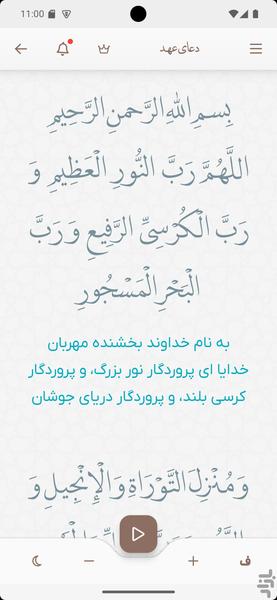 11:00
دعای عهد
بِسمِ اللهِ الرَّحمنِ الرَّحِیمِ
اللَّهُمَّ رَبَّ النُّورِ الْعَظِیمِ وَ
رَبَّ الْكُرْسِیِّ الرَّفِیعِ وَ رَبَّ
الْبَحْرِ الْمَسْجُورِ
به نام خداوند بخشنده مهربان
خدایا ای پروردگار نور بزرگ، و پروردگار
کرسی بلند، و پروردگار دریای جوشان
وَ مُنْزِلَ التَّوْرَاةِ وَ الْإِنْجِیلِ وَ
ف
بازار